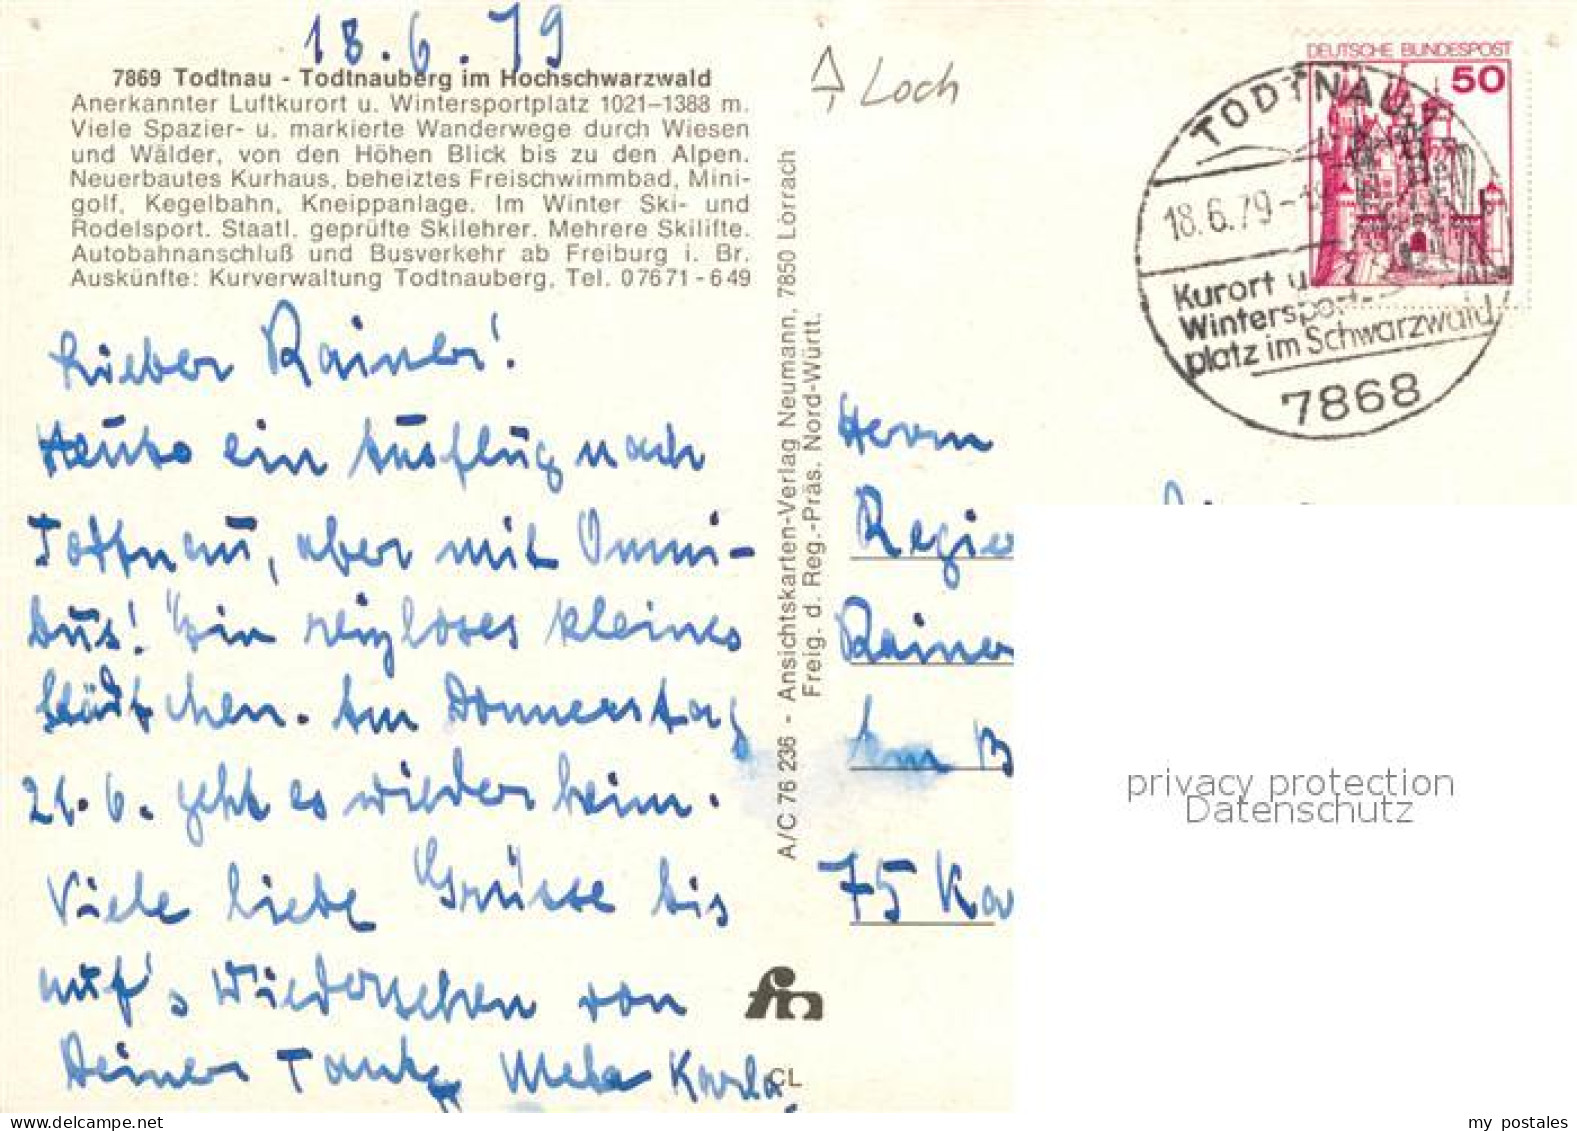 18.6.79
7869 Todtnau - Todtnauberg im Hochschwarzwald
Anerkannter Luftkurort u. Wintersportplatz 1021–1388 m.
Viele Spazier- u. markierte Wanderwege durch Wiesen
und Wälder, von den Höhen Blick bis zu den Alpen.
Neuerbautes Kurhaus, beheiztes Freischwimmbad, Mini-
golf, Kegelbahn, Kneippanlage. Im Winter Ski- und
Rodelsport. Staatl. geprüfte Skilehrer. Mehrere Skilifte.
Autobahnanschluß und Busverkehr ab Freiburg i. Br.
Auskünfte: Kurverwaltung Todtnauberg, Tel. 07671-649
Lieber Rainer!
Heute ein Ausflug nach
Todtnau, aber mit Omni-
bus! Ein reizloses kleines
Städtchen. Am Donnerstag
21.6. geht es wieder heim.
Viele liebe Grüsse bis
auf's Wiedersehen von
Deiner Tante Meta Karla.
A/C 76 236 - Ansichtskarten-Verlag Neumann, 7850 Lörrach
Freig. d. Reg.-Präs. Nord-Württ.
fm
CL
Loch
DEUTSCHE BUNDESPOST
50
TODTNAU
18.6.79-18
Kurort u.
Wintersport-
platz im Schwarzwald
7868
Herrn
Regie
Rainer
Am B
75 Ka
privacy protection
Datenschutz
my postales